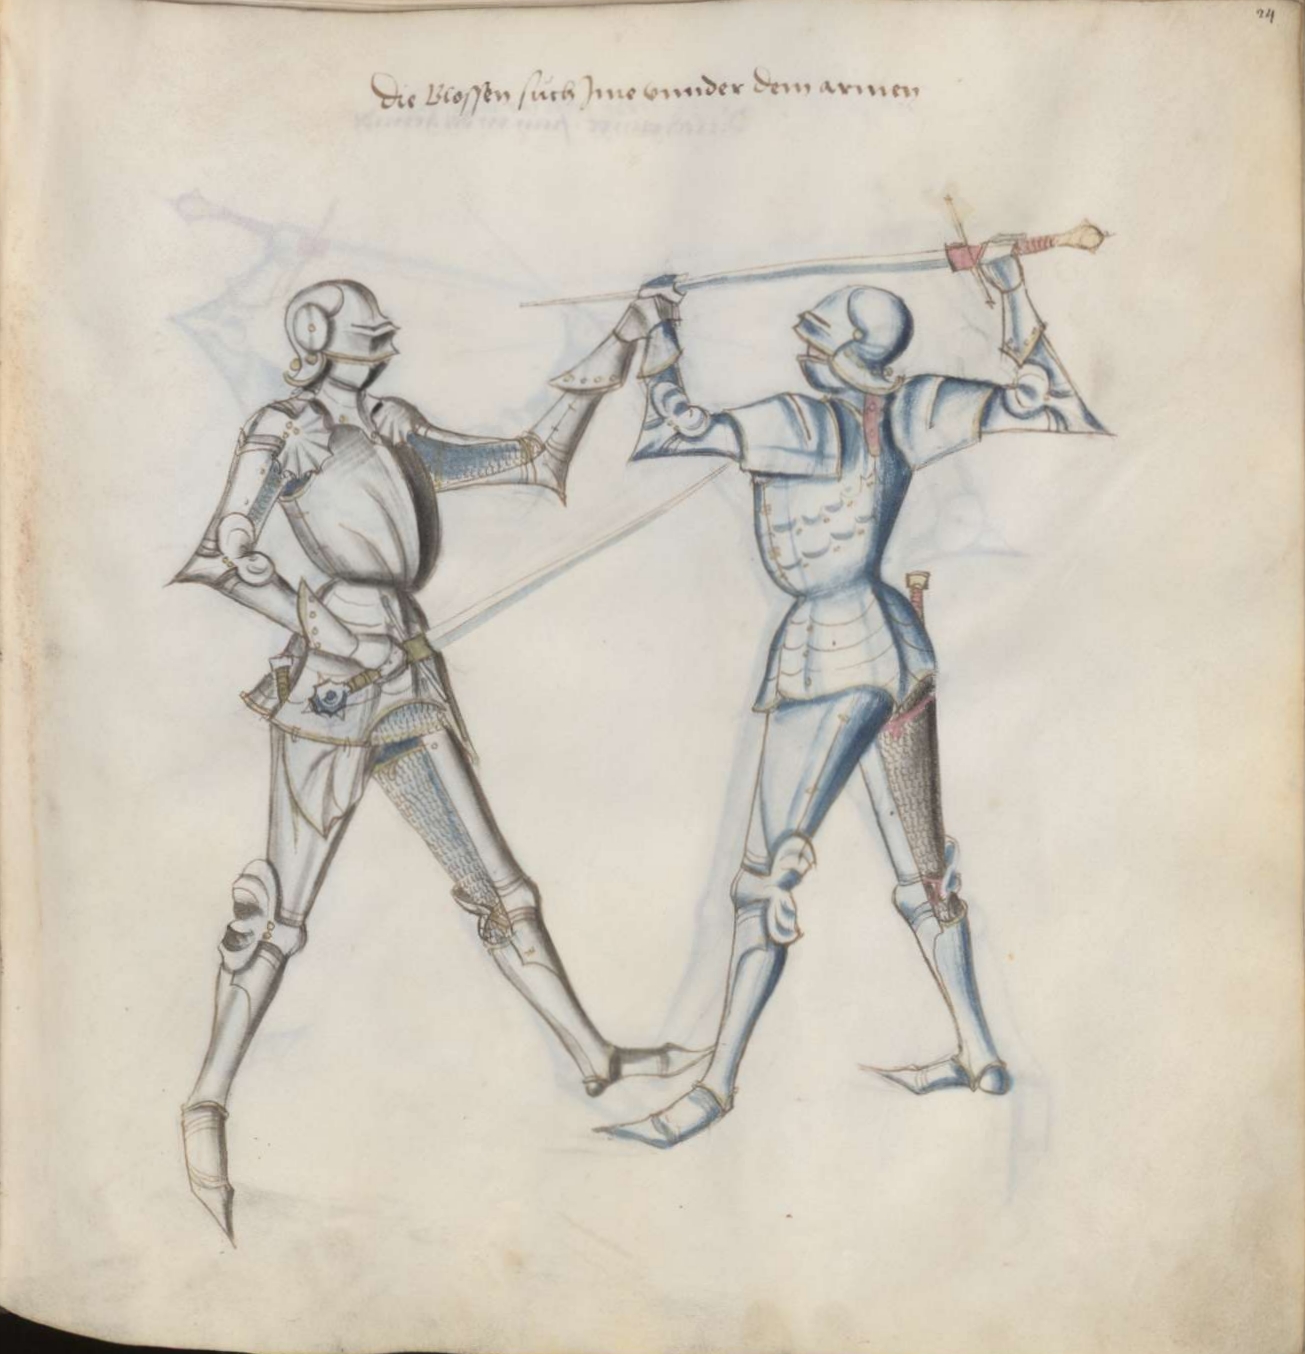 24
Die Blossen such Ime vnnder dem armen